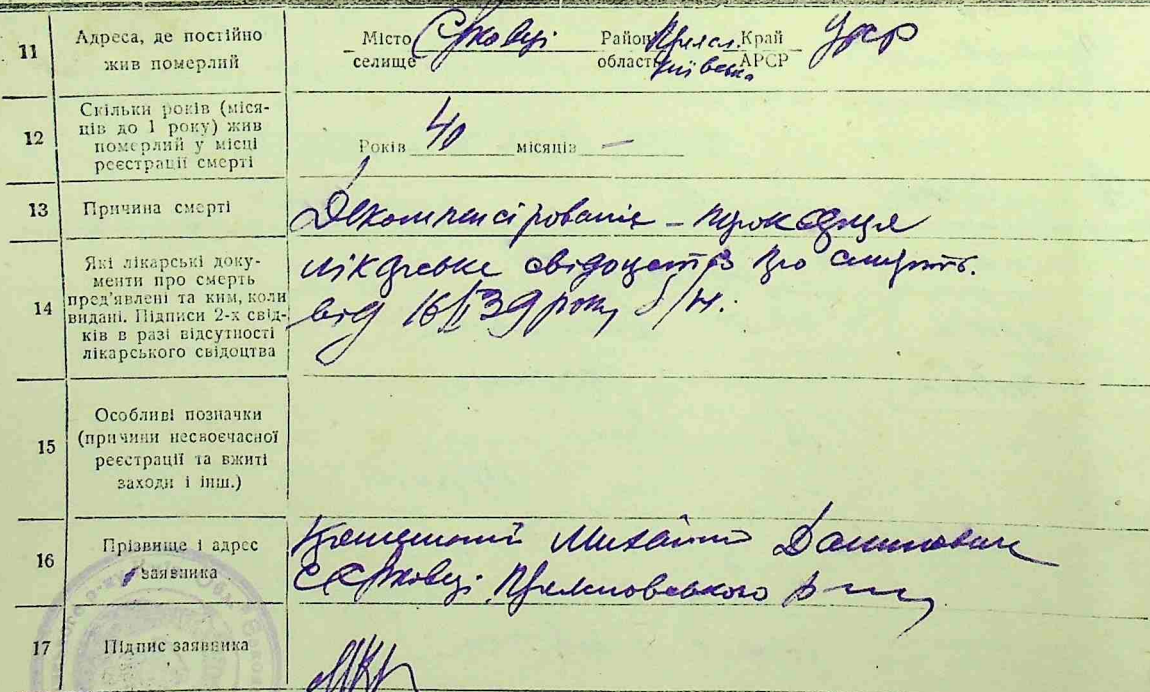 11
Адреса, де постійно
жив померлий
Місто
селище
Район
область
Київська
Край
АРСР
УРСР
12
Скільки років (міся-
ців до 1 року) жив
померлий у місці
реєстрації смерті
Років 40 місяців —
13
Причина смерті
14
Які лікарські доку-
менти про смерть
пред'явлені та ким, коли
видані. Підписи 2-х свід-
ків в разі відсутності
лікарського свідоцтва
лікарське свідоцтво про смерть.
від 16/II 39 року б/н.
15
Особливі позначки
(причини несвоєчасної
реєстрації та вжиті
заходи і інш.)
16
Прізвище і адрес
заявника
Михайло Данилович
17
Підпис заявника